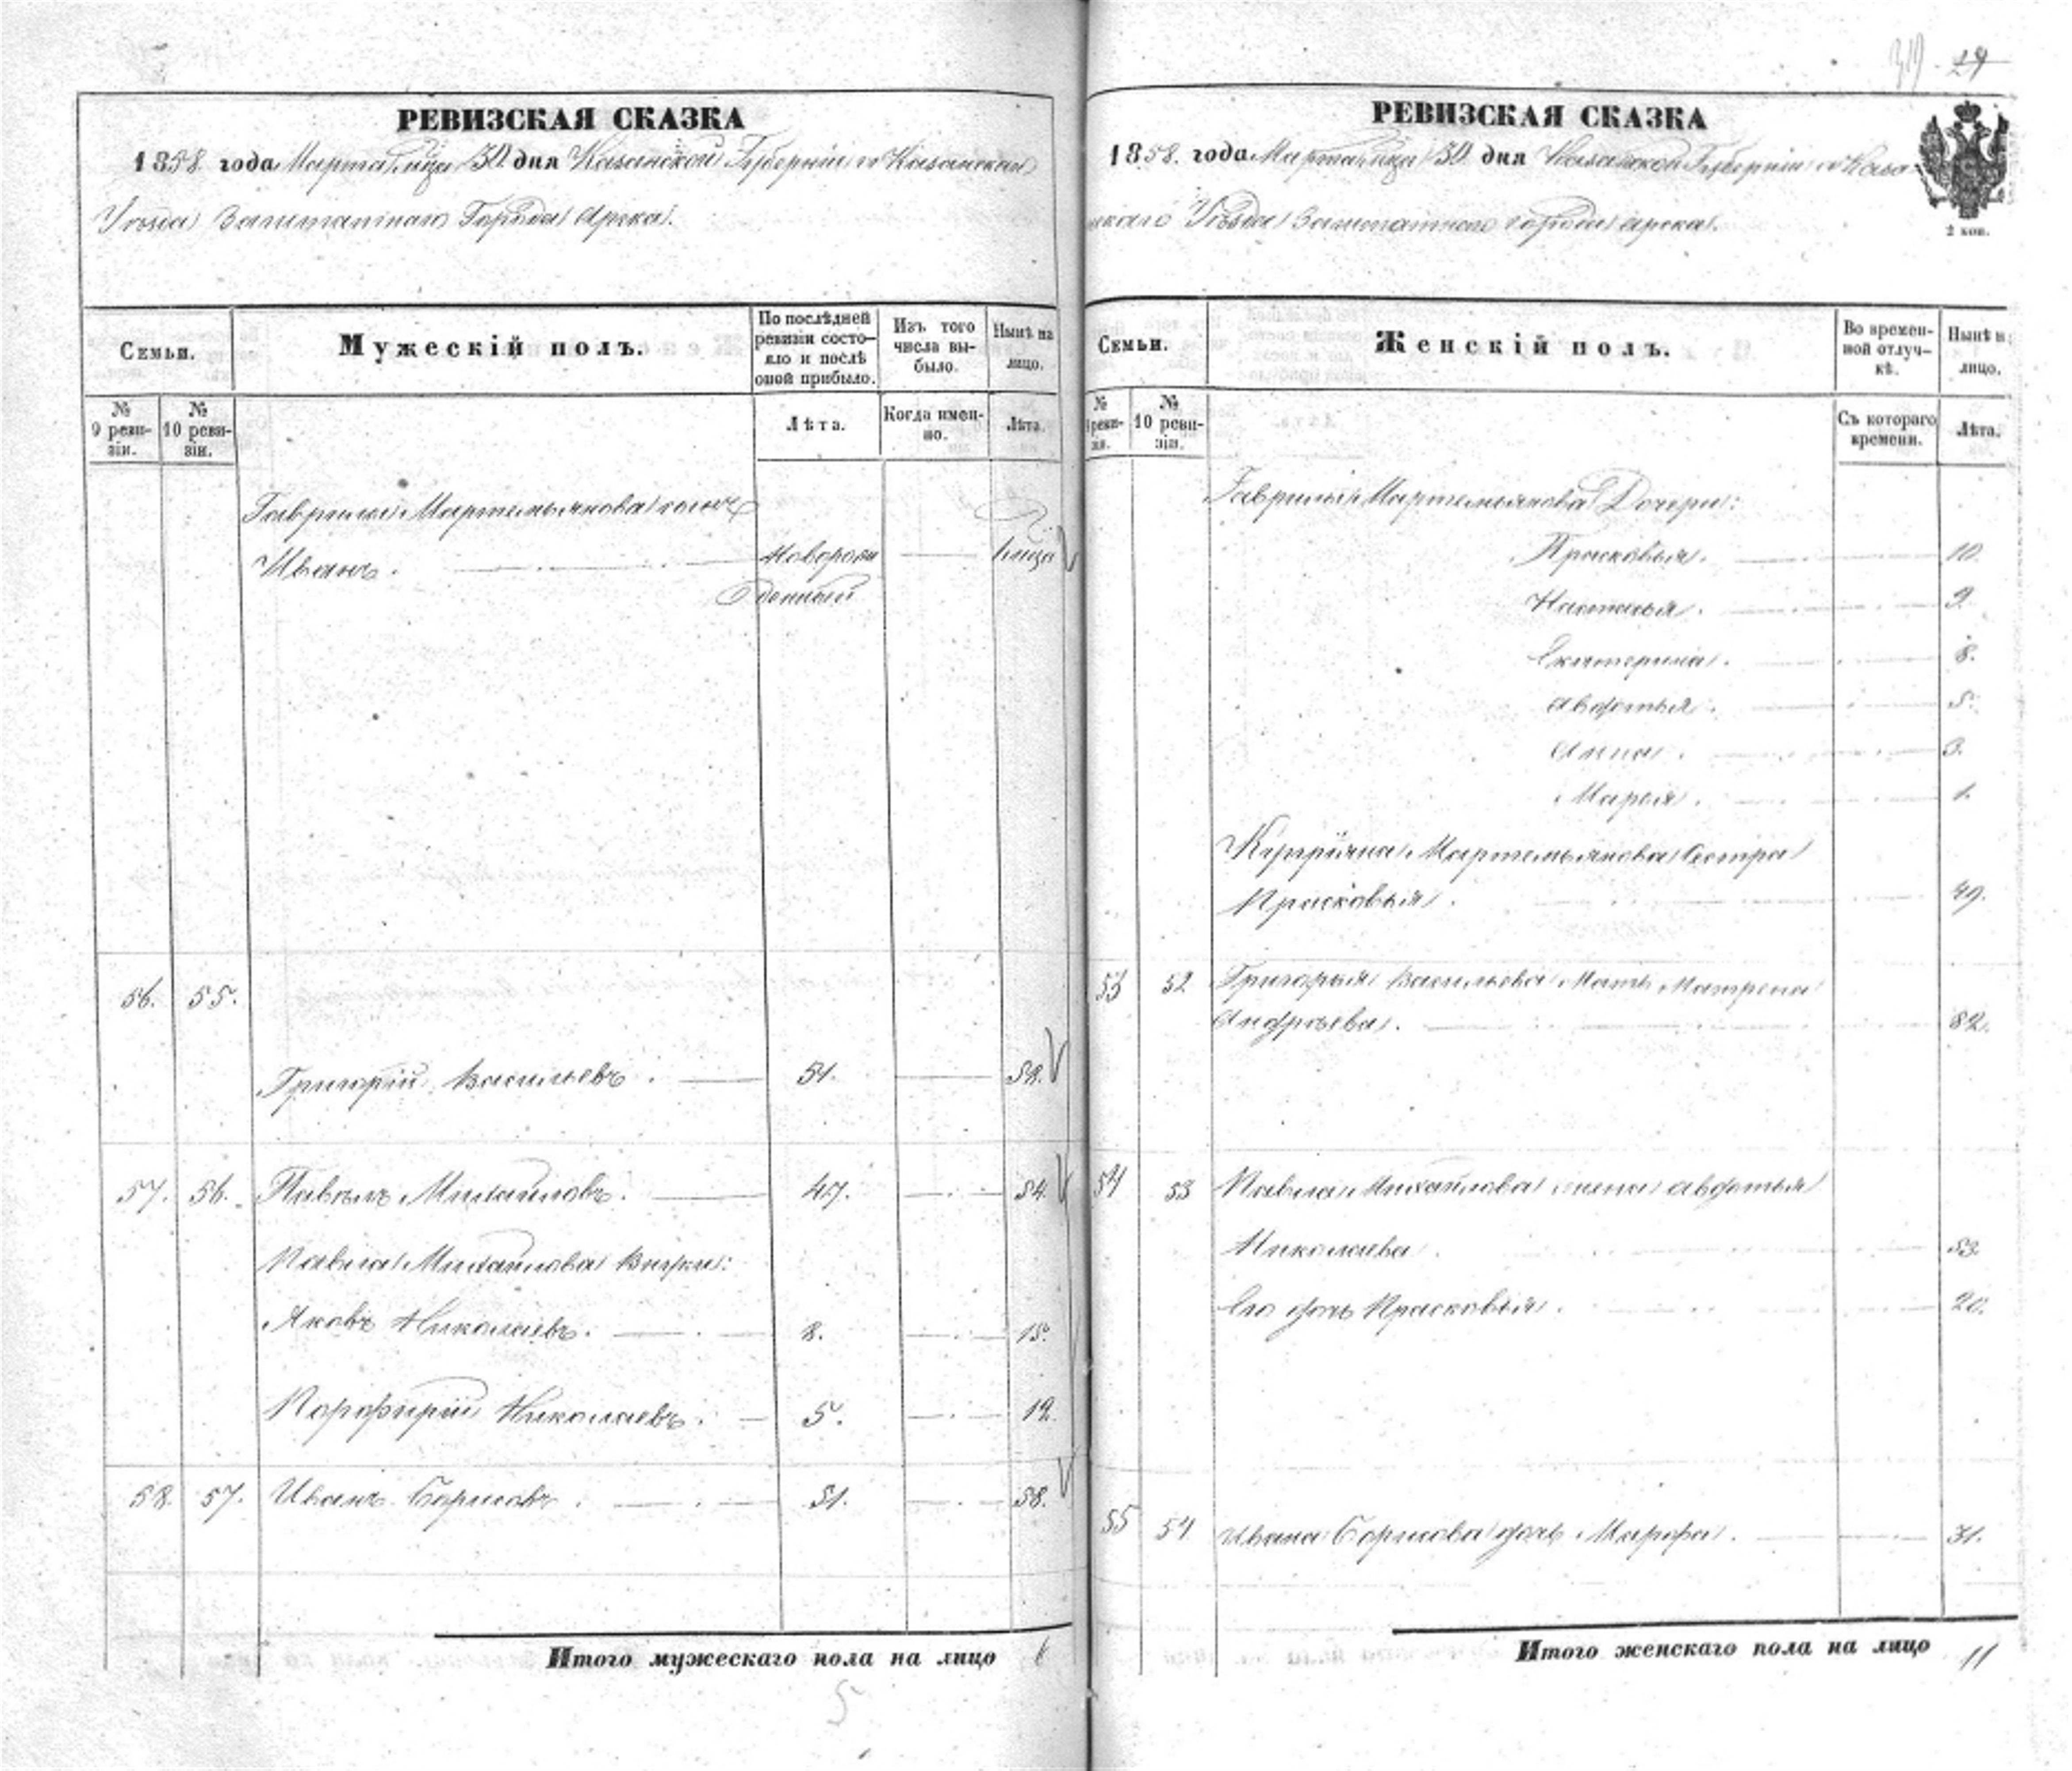 РЕВИЗСКАЯ СКАЗКА
1858. года Марта 30. дня Казанской Губерніи и Казанскаго
Уѣзда Заштатнаго Города Арска.
Семьи.
Мужескій полъ.
По послѣдней ревизіи состояло и послѣ оной прибыло.
Изъ того числа выбыло.
Нынѣ на лицо.
№ 9 ревизіи.
№ 10 ревизіи.
Лѣта.
Когда именно.
Лѣта.
Гаврилы Мартемьянова сынъ
Иванъ. Новорож
денный
56. 55.
Григорій Васильевъ. 51. 58.
57. 56. Павелъ Михайловъ. 47. 54.
Павла Михайлова внуки:
Яковъ Николаевъ. 8. 15.
Порфирій Николаевъ. 5. 12.
58. 57. Иванъ Борисовъ. 51. 58.
Итого мужескаго пола на лицо
5
29
РЕВИЗСКАЯ СКАЗКА
1858. года Марта 30. дня Казанской Губерніи и Казан
скаго Уѣзда Заштатнаго города Арска.
2 коп.
Семьи.
Женскій полъ.
Во временной отлучкѣ.
Нынѣ н
лицо.
№ 9 ревизіи.
№ 10 ревизіи.
Съ котораго времени.
Лѣта.
Гаврилы Мартемьянова Дочери:
Прасковья. 10.
Настасья. 9.
Екатерина. 8.
Авдотья. 5.
Анна. 3.
Марья. 1.
Мартемьянова Сестра
Прасковья. 49.
53 52 Григорья Васильева Мать Матрена
Андреева. 82.
54 53 Павла Михайлова жена Авдотья
Николаева. 53.
Его дочь Прасковья. 20.
55 54 Ивана Борисова дочь Марфа. 31.
Итого женскаго пола на лицо 11